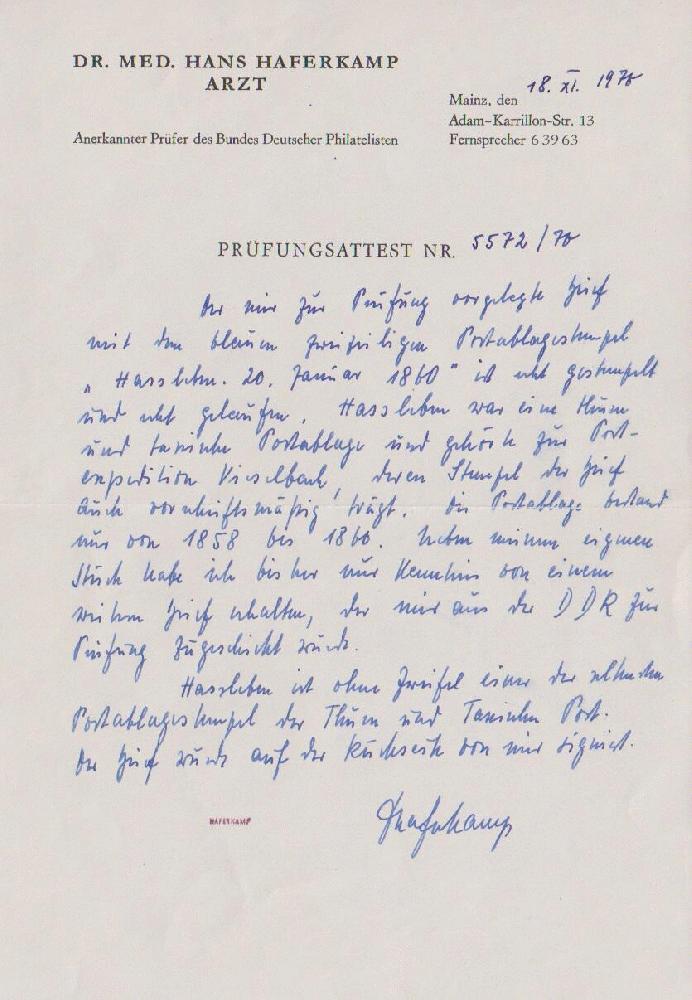 DR. MED. HANS HAFERKAMP
ARZT
18. XI. 1970
Mainz, den
Adam-Karrillon-Str. 13
Anerkannter Prüfer des Bundes Deutscher Philatelisten
Fernsprecher 6 39 63
PRÜFUNGSATTEST NR. 5572/70
Der mir zur Prüfung vorgelegte Brief
mit dem blauen zweizeiligen Postablagestempel
„Hassleben. 20. Januar 1860" ist echt gestempelt
und echt gelaufen. Hassleben war eine Thurn
und taxische Postablage und gehörte zur Post-
expedition Vieselbach, deren Stempel der Brief
auch vorschriftsmäßig trägt. Die Postablage bestand
nur von 1858 bis 1860. Neben meinem eigenen
Stück habe ich bisher nur Kenntnis von einem
weiteren Brief erhalten, der mir aus der DDR zur
Prüfung zugeschickt wurde.
Hassleben ist ohne Zweifel einer der seltensten
Postablagestempel der Thurn und Taxischen Post.
Der Brief wurde auf der Rückseite von mir signiert.
HAFERKAMP
Haferkamp